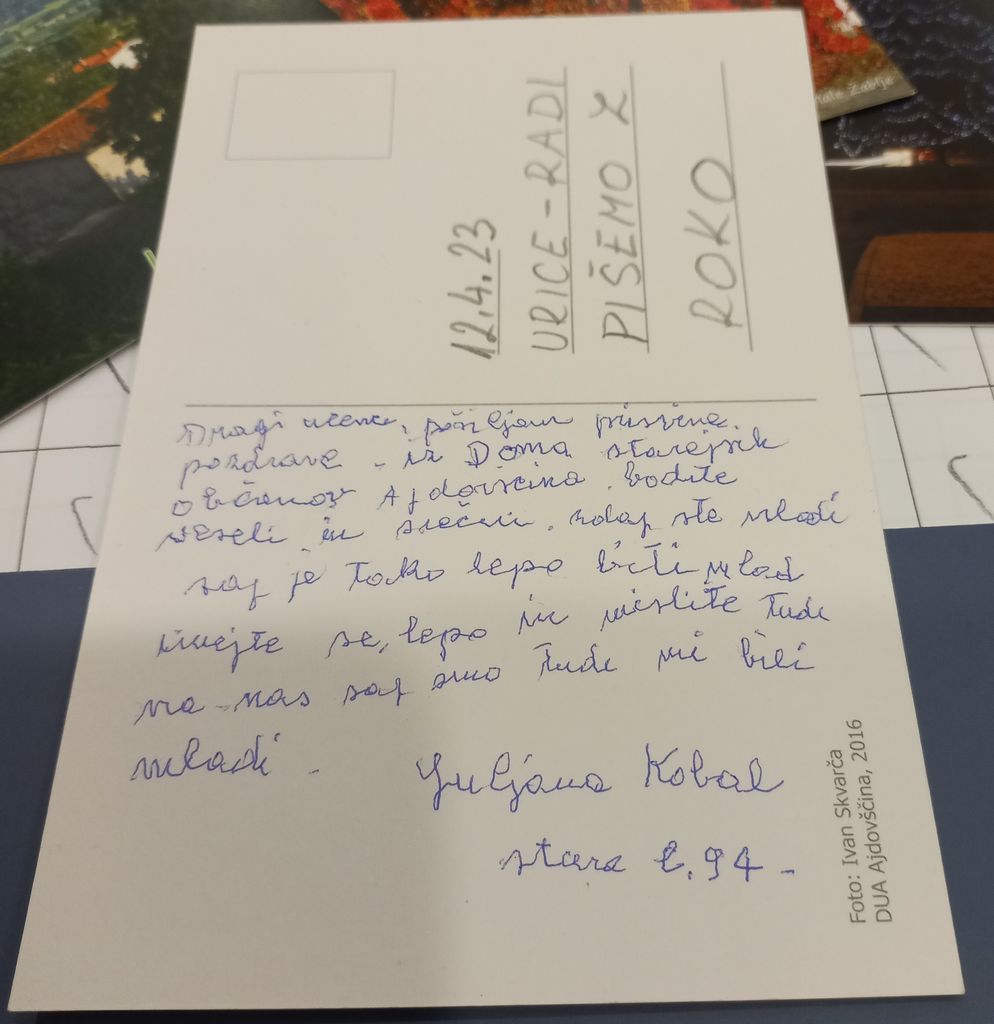 12.4.23
URICE - RADI
PIŠEMO Z
ROKO
Dragi učenci, pošiljam prisrčne
pozdrave - iz Doma starejših
občanov Ajdovščina. bodite
veseli in srečni, zdaj ste mladi
saj je tako lepo biti mlad
imejte se, lepo in mislite tudi
na-nas saj smo tudi mi bili
mladi.
Juljana Kobal
stara l. 94 -
Foto: Ivan Skvarča
DUA Ajdovščina, 2016
Male Žablje